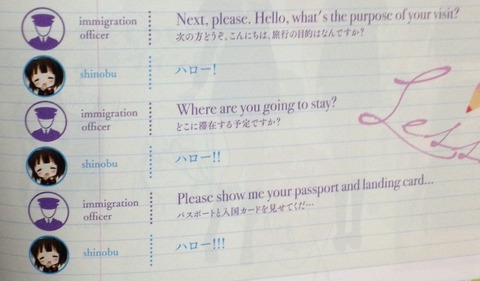 immigration officer
Next, please. Hello, what's the purpose of your visit?
次の方どうぞ。こんにちは、旅行の目的はなんですか?
shinobu
ハロー!
immigration officer
Where are you going to stay?
どこに滞在する予定ですか?
shinobu
ハロー!!
immigration officer
Please show me your passport and landing card...
パスポートと入国カードを見せてくだ…
shinobu
ハロー!!!
Less